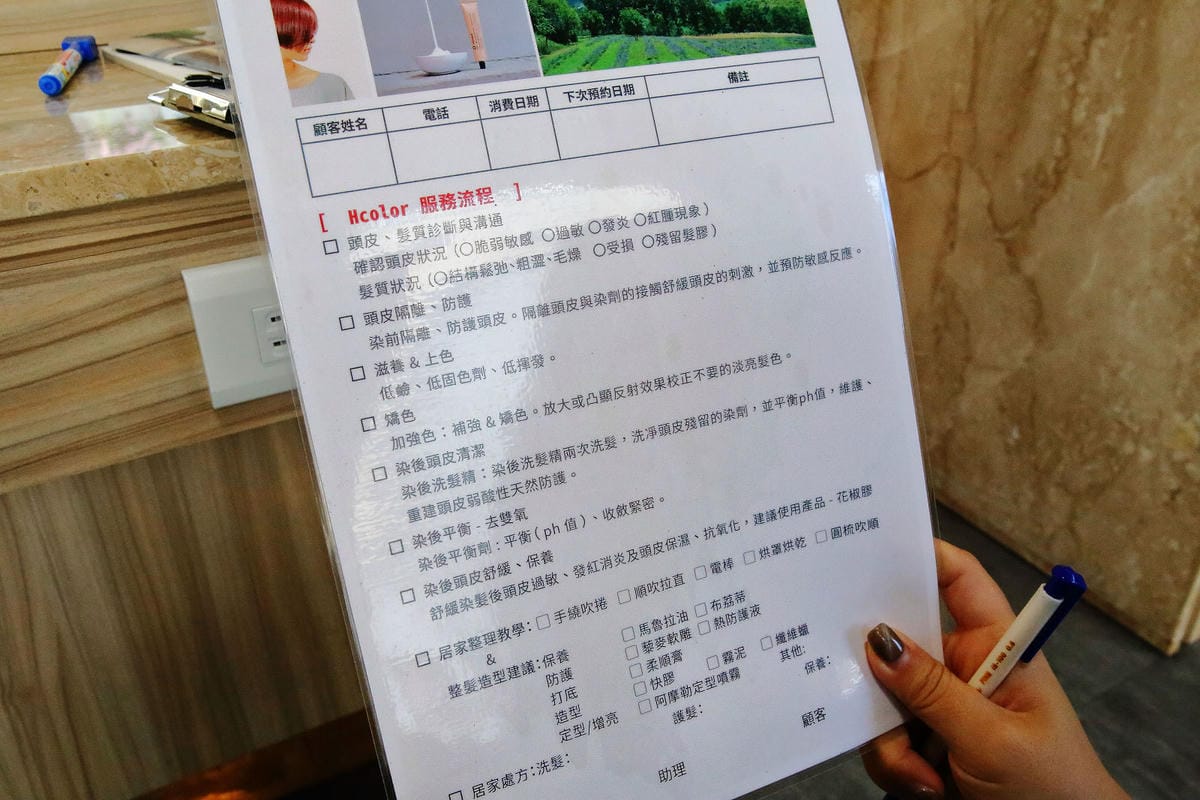 顧客姓名 電話 消費日期 下次預約日期 備註
[ Hcolor 服務流程 ]
□ 頭皮、髮質診斷與溝通
確認頭皮狀況 (○脆弱敏感 ○過敏 ○發炎 ○紅腫現象)
髮質狀況 (○結構鬆弛、粗澀、毛燥 ○受損 ○殘留髮膠)
□ 頭皮隔離、防護
染前隔離、防護頭皮。隔離頭皮與染劑的接觸舒緩頭皮的刺激，並預防敏感反應。
□ 滋養 & 上色
低鹼、低固色劑、低揮發。
□ 矯色
加強色：補強 & 矯色。放大或凸顯反射效果校正不要的淡亮髮色。
□ 染後頭皮清潔
染後洗髮精：染後洗髮精兩次洗髮，洗淨頭皮殘留的染劑，並平衡ph值，維護、
重建頭皮弱酸性天然防護。
□ 染後平衡 - 去雙氧
染後平衡劑：平衡(ph 值)、收斂緊密。
□ 染後頭皮舒緩、保養
舒緩染髮後頭皮過敏、發紅消炎及頭皮保濕、抗氧化，建議使用產品 - 花椒膠
□ 居家整理教學：□ 手繞吹捲 □ 順吹拉直 □ 電棒 □ 烘罩烘乾 □ 圓梳吹順
&
整髮造型建議：保養 □ 馬魯拉油 □ 布荔蒂
防護 □ 藜麥軟雕 □ 熱防護液
打底 □ 柔順膏
造型 □ 快膠 □ 霧泥 □ 纖維蠟
定型/增亮 □ 阿摩勒定型噴霧 其他:
□ 居家處方：洗髮： 護髮： 保養：
助理 顧客